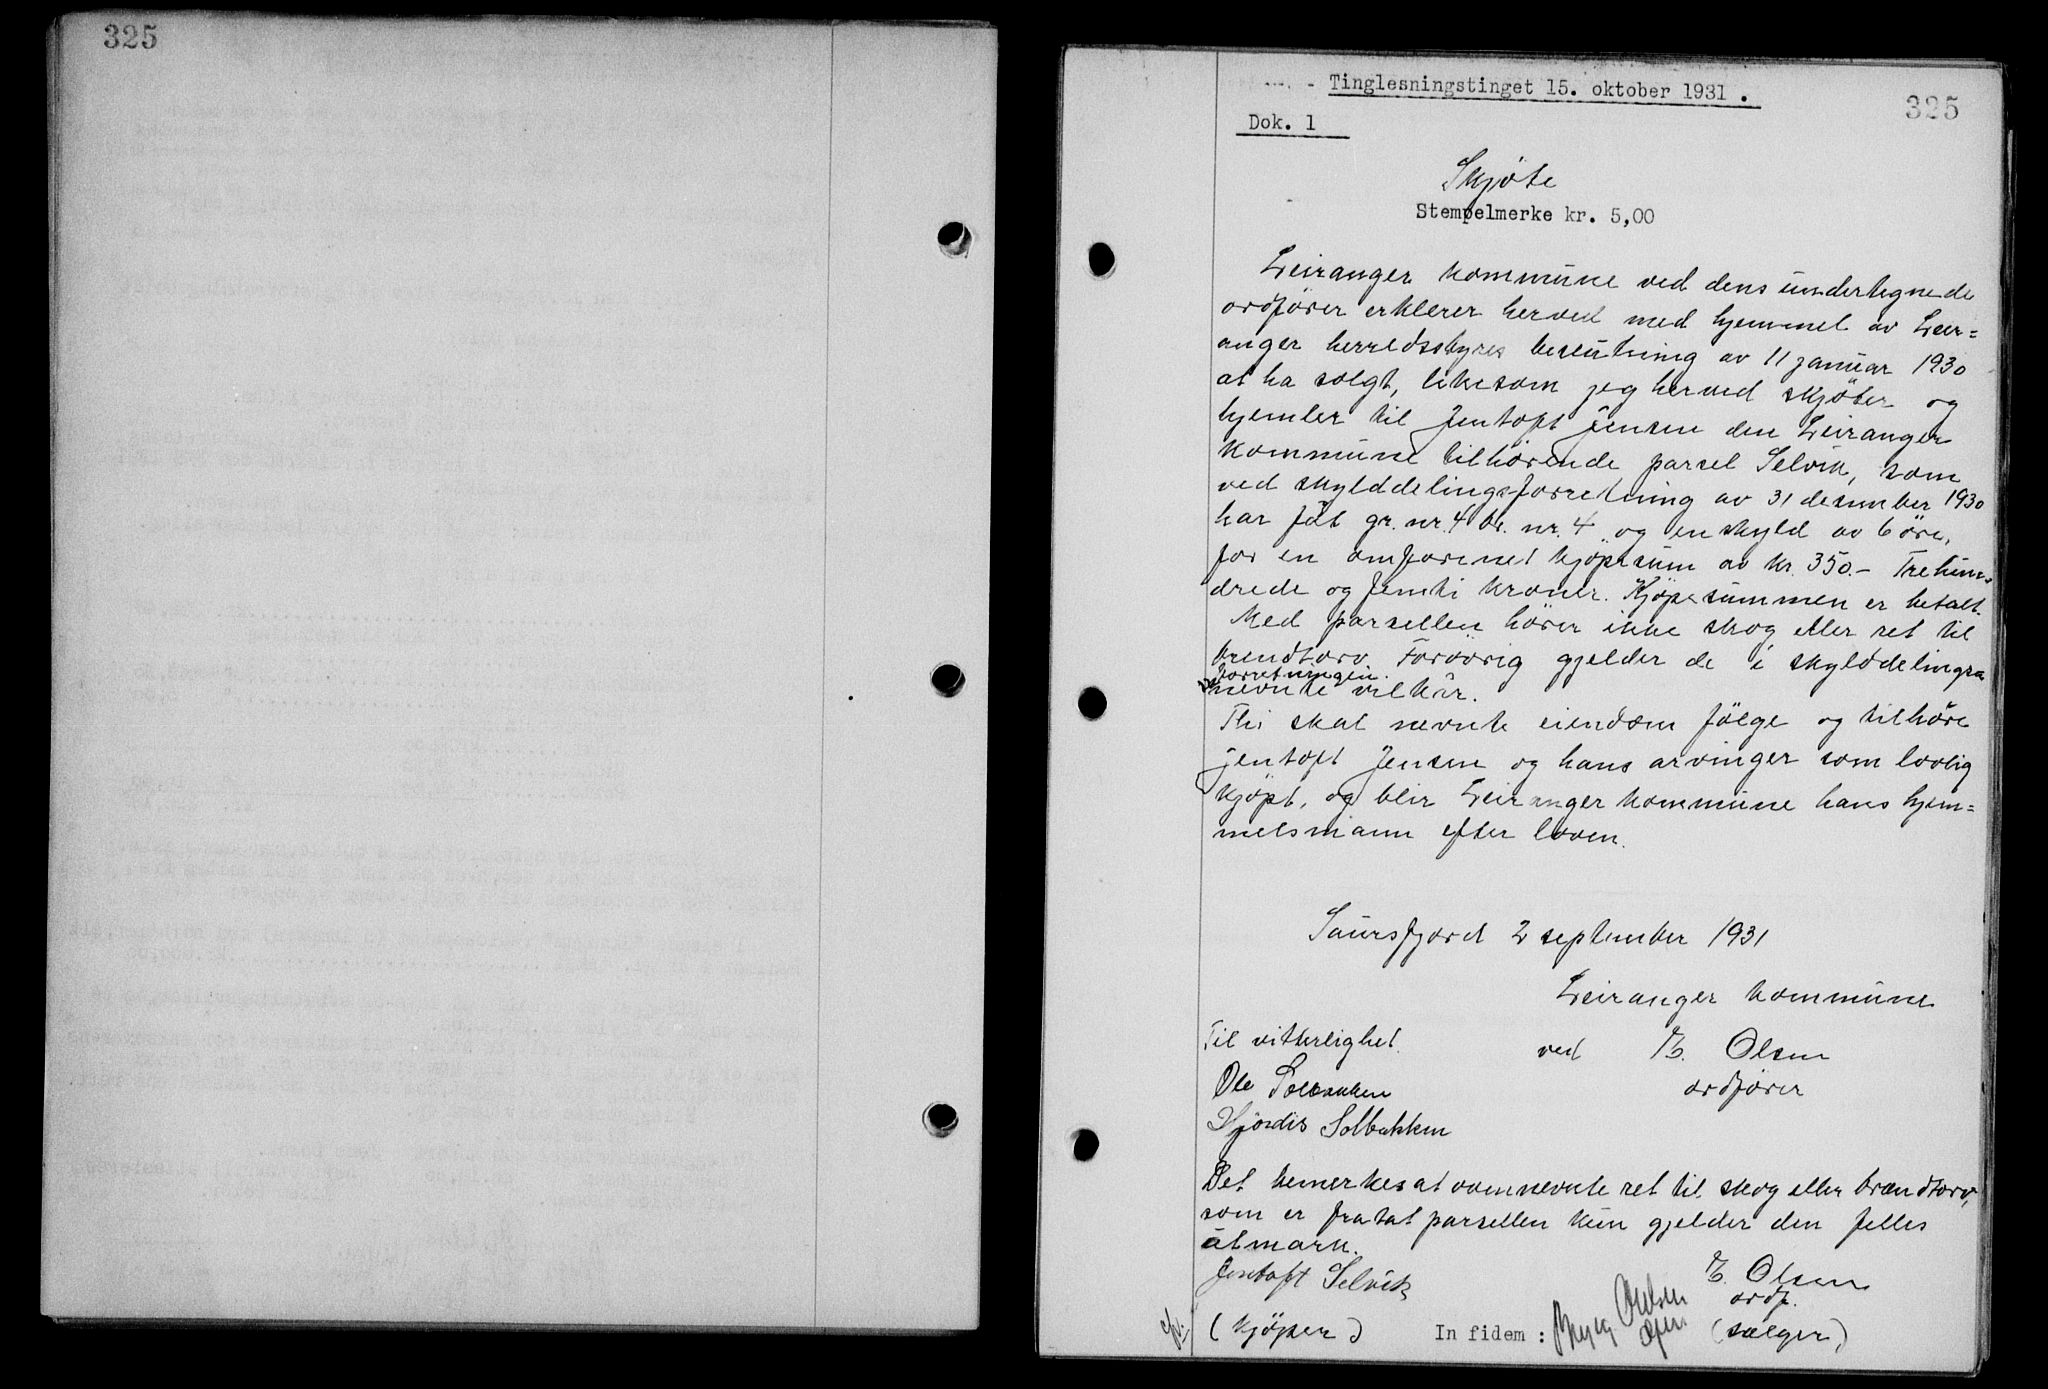 325
Tinglesningstinget 15. oktober 1931.
325
Dok. 1
Skjøte
Stempelmerke kr. 5,00
Leiranger kommune ved dens undertegnede
ordfører erklerer herved med hjemmel av Leir=
anger herredsstyres beslutning av 11 januar 1930
at ha solgt, likesom jeg herved skjøter og
hjemler til Jentoft Jensen den Leiranger
kommune tilhørende parsel Selvik, som
ved skylddelingsforretning av 31 desember 1930
har fåt gr. nr. 4 br. nr. 4 og en skyld av 6 øre,
for en omforenet kjøpesum av kr. 350.- Trehun-
drede og femti kroner. Kjøpesummen er betalt.
Med parsellen hører ikke skog eller ret til
brendtorv. Forøvrig gjelder de i skylddelings-
forretningen
nevnte vilkår.
Thi skal nevnte eiendom følge og tilhøre
Jentoft Jensen og hans arvinger som lovlig
kjøpt, og blir Leiranger kommune hans hjem=
melsmann efter loven.
Saursfjord 2 september 1931
Leiranger kommune
Til vitterlighet. ved E. Olsen
Ole Solbakken ordfører
Hjørdis Solbakken
Det bemerkes at ovennevnte ret til skog eller brændtorv,
som er fratat parsellen kun gjelder den felles
utmark.
Jentoft Selvik E. Olsen
ordf.
(kjøper) In fidem: (sælger)